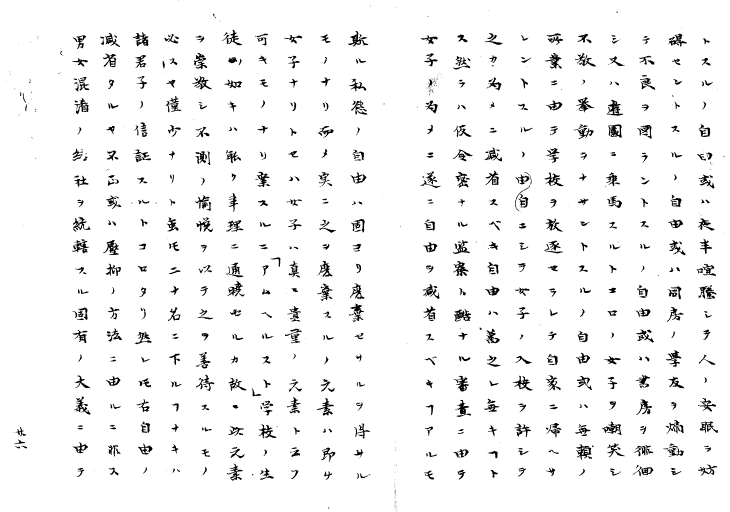 トスルノ自由或ハ夜半喧騒シテ人ノ安眠ヲ妨
碍セントスルノ自由或ハ同房ノ学友ヲ煽動シ
テ不良ヲ図ラントスルノ自由或ハ書房ヲ徘徊
シ又ハ遊園ニ乗馬スルトコロノ女子ヲ嘲笑シ
不敬ノ挙動ヲナサントスルノ自由或ハ無頼ノ
所業ニ由テ学校ヲ放逐セラレテ自家ニ帰ヘサ
レントスルノ由自ニシテ女子ノ入校ヲ許シテ
之カ為メニ減省スベキ自由ハ万之レ毎キフト
ス然ラハ仮令密ナル監察ト酷ナル審査ニ由テ
女子ノ為メニ遂ニ自由ヲ減省スベキフアルモ
斯ル私慾ノ自由ハ固ヨリ廃棄セサルヲ得サル
モノナリ而メ実ニ之ヲ廃棄スルノ元素ハ即チ
女子ナリトセハ女子ハ真ニ貴重ノ元素ト云フ
可キモノナリ案スルニ「アムヘルスト」学校ノ生
徒ノ如キハ能ク事理ニ通暁セルカ故ニ此元素
ヲ崇敬シ不測ノ愉悦ヲ以テ之ヲ善待スルモノ
必スヤ僅少ナリト虽モ二十名ニ下ルフナキハ
諸君子ノ信証スルトコロタリ然レモ右自由ノ
減省タルヤ不正或ハ圧抑ノ方法ニ由ルニ非ス
男女混淆ノ結社ヲ統轄スル固有ノ大義ニ由テ
廿六